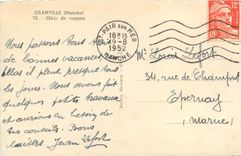 GRANVILLE (Manche)
79. - Effets de vagues
Nous passons tous
de bonnes vacances
il pleut presque tous
les jours. Nous avons fait
quelques petits travaux
et aurions eu besoin de
ses conseils. Bons
baisers Jean Lefort
ST-PAIR SUR MER
18H15
9-8
1952
MANCHE
12F
Mr Louis Lefort
34, rue de Champfort
Epernay
Marne